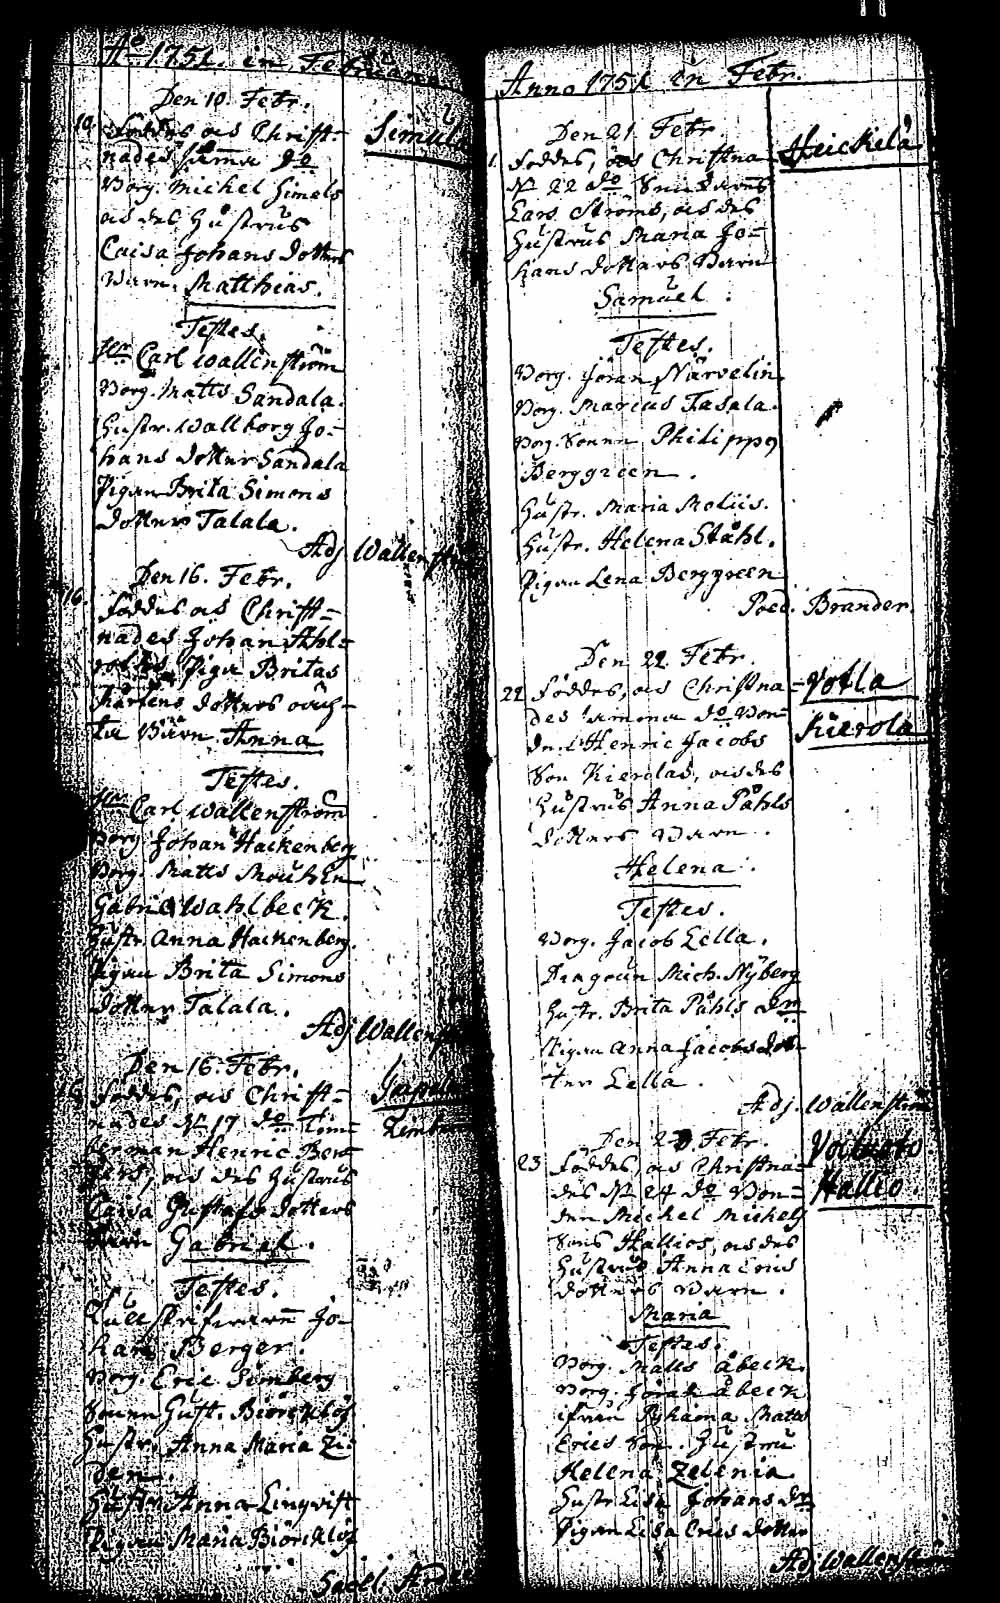 Ao 1751. in Februario
Den 10. Febr.
10. Föddes ocs Christ- Simula
nades samma do
Borg. Michel Simels
ocs des Hustrus
Caisa Johans dotters
Barn. Matthias.
Testes.
Hr Carl Wallenström
Borg. Matts Sandala.
Hustr. Wallborg Jo-
hans dotter Sandala
Pigan Brita Simons
dotter Talala.
Adj Wallenström
Den 16. Febr.
16. Föddes ocs Christ-
nades Johan Ahl-
Pigu Britas
Mårtens dotters oäch-
ta Barn. Anna
Testes.
Hr Carl Wallenström
Borg Johan Hackenberg
Borg. Matts
Gabriel Wahlbeck.
Hustr. Anna Hackenberg.
Pigan Brita Simons
dotter Talala.
Adj Wallenström
Den 16. Febr.
16 Föddes, ocs Christ-
nades N 17 do Tim-
berman Henric Ber-
gers, ocs des Hustrus
Caisa Gustafs dotters
Barn Gabriel.
Testes.
Jo-
han Berger.
Borg. Eric Simberg
Sonen Gust. Biörcklöf
Hustr. Anna Maria Zi-
den.
Hustr. Anna Linqvist
Pigan Maria Biörcklöf
Sacell.
Anno 1751 in Febr.
Den 21. Febr.
Föddes, ocs Christna- Heickilä
N 22 do
Lars Ströms, ocs des
Hustrus Maria Jo-
hans dotters Barn
Samuel.
Testes.
Borg. Jöran Närvelin.
Borg. Marcus Tasala.
Borg. Sonen Philippq
Berggreen.
Hustr. Maria Moliis.
Hustr. Helena Ståhl.
Pigan Lena Berggreen
Poed. Brander.
Den 22. Febr.
22 Föddes, ocs Christna- Votla
des samma do Bon- Kierola
den Henric Jacobs
Son Kierolas, ocs des
Hustrus Anna Påhls
dotters Barn.
Helena.
Testes.
Borg. Jacob Lella.
Dragoun Mich. Nyberg
Hustr. Brita Påhls dr
Pigan Anna Jacobs dot-
ter Lella.
Adj. Wallenström
Den 23. Febr.
23 Föddes, ocs Christna-
des N 24 do Bon- Hallio.
den Michel Michels
Sons Hallios, ocs des
Hustrus Anna Eriis
dotters Barn.
Maria
Testes.
Borg. Matts Åbeck.
Borg. Jöran Åbeck
ifrån Pyhäma Matts
Erics Son. Hustru
Helena Zelenia
Hustr Lisa Johans dr
Pigan Lisa Erics dotter
Adj Wallenström